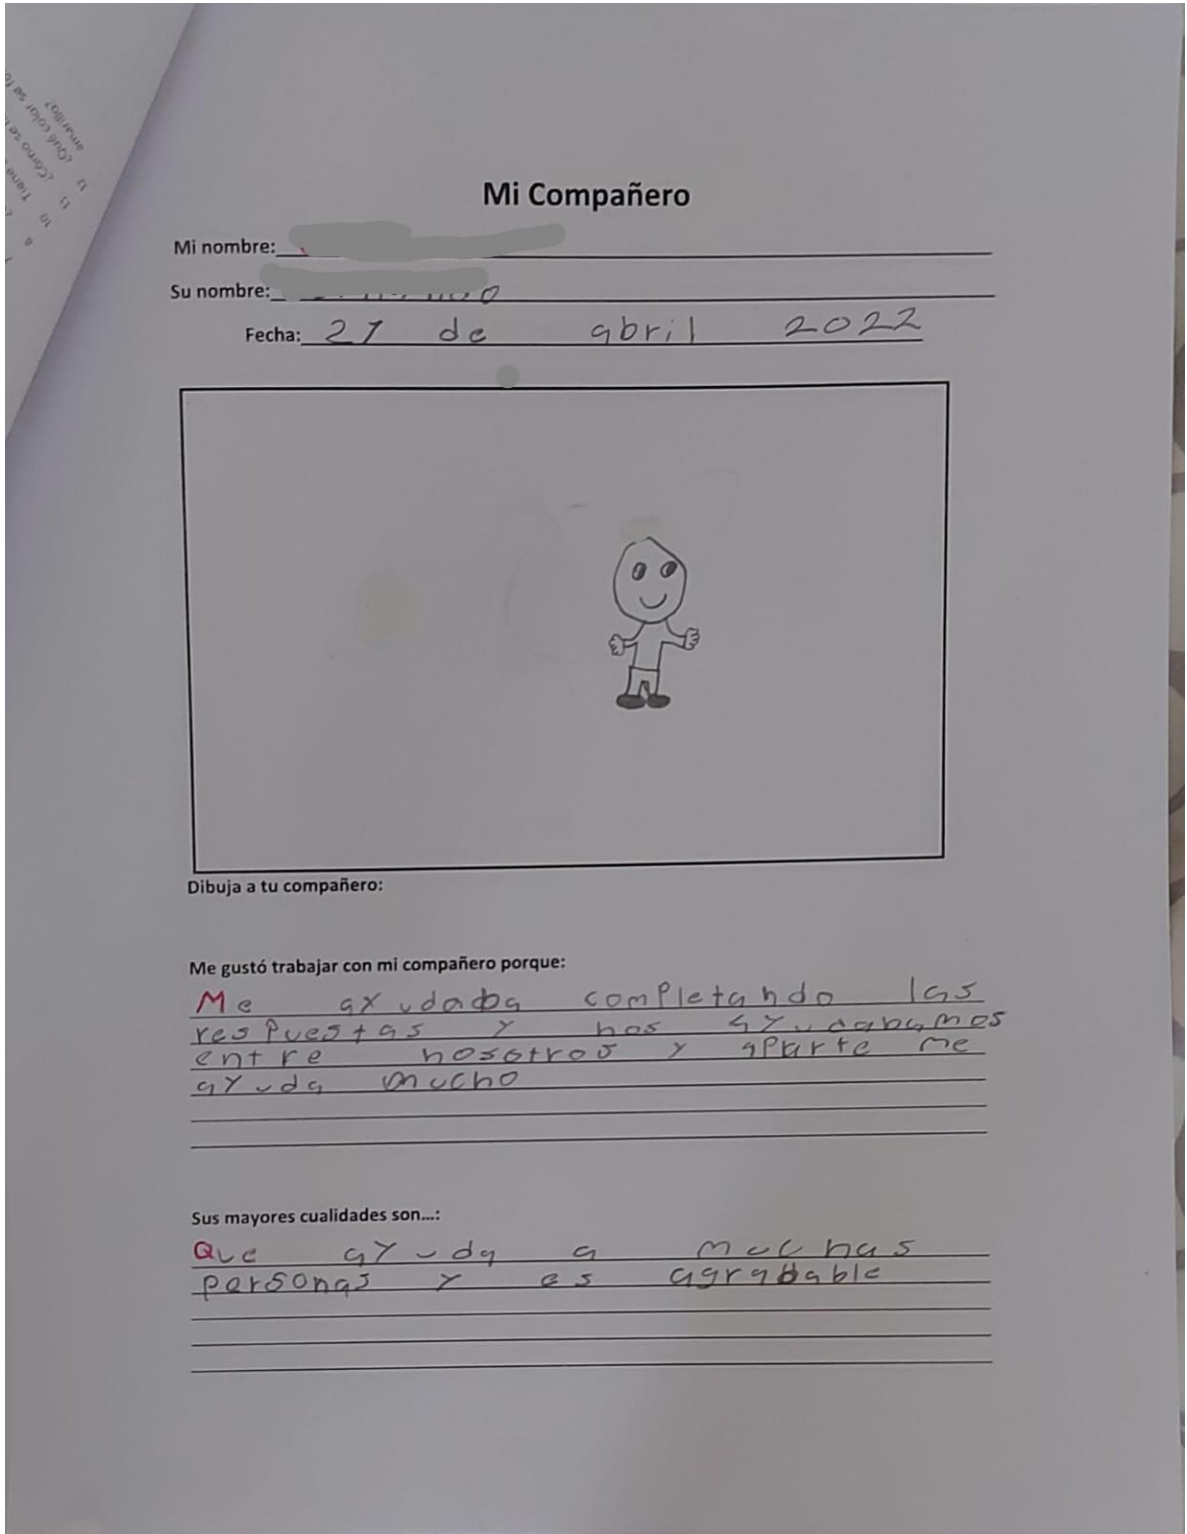 12 ¿Qué color se fo
amarillo?
11 ¿Cómo se
10 Tiene
Mi Compañero
Mi nombre:
Su nombre:
Fecha: 27 de abril 2022
Dibuja a tu compañero:
Me gustó trabajar con mi compañero porque:
Me ayudaba completando las
respuestas y nos ayudabamos
entre nosotros y aparte me
ayuda mucho
Sus mayores cualidades son...:
Que ayuda a muchas
personas y es agradable